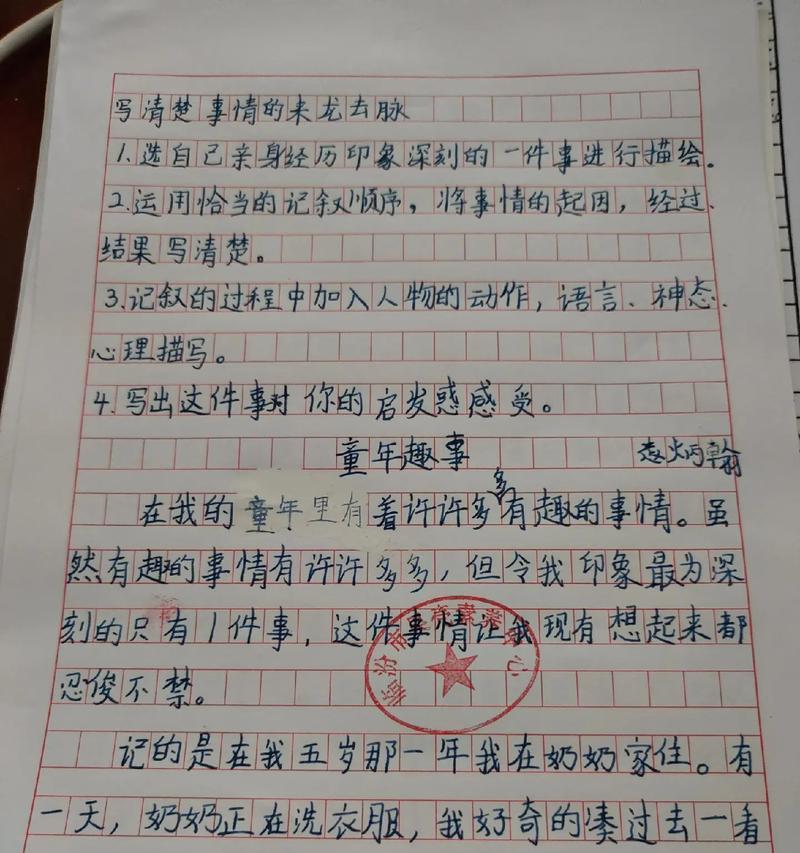 写清楚事情的来龙去脉
1.选自己亲身经历印象深刻的一件事进行描绘.
2.运用恰当的记叙顺序，将事情的起因，经过、
结果写清楚。
3.记叙的过程中加入人物的动作，语言、神态、
心理描写。
4.写出这件事对你的启发感受。
童年趣事 炳翰
在我的童年里有着许许多多有趣的事情。虽
然有趣的事情有许许多多，但令我印象最为深
刻的只有1件事，这件事情让我现有想起来都
忍俊不禁。
记的是在我五岁那一年我在奶奶家住。有
一天，奶奶正在洗衣服，我好奇的凑过去一看